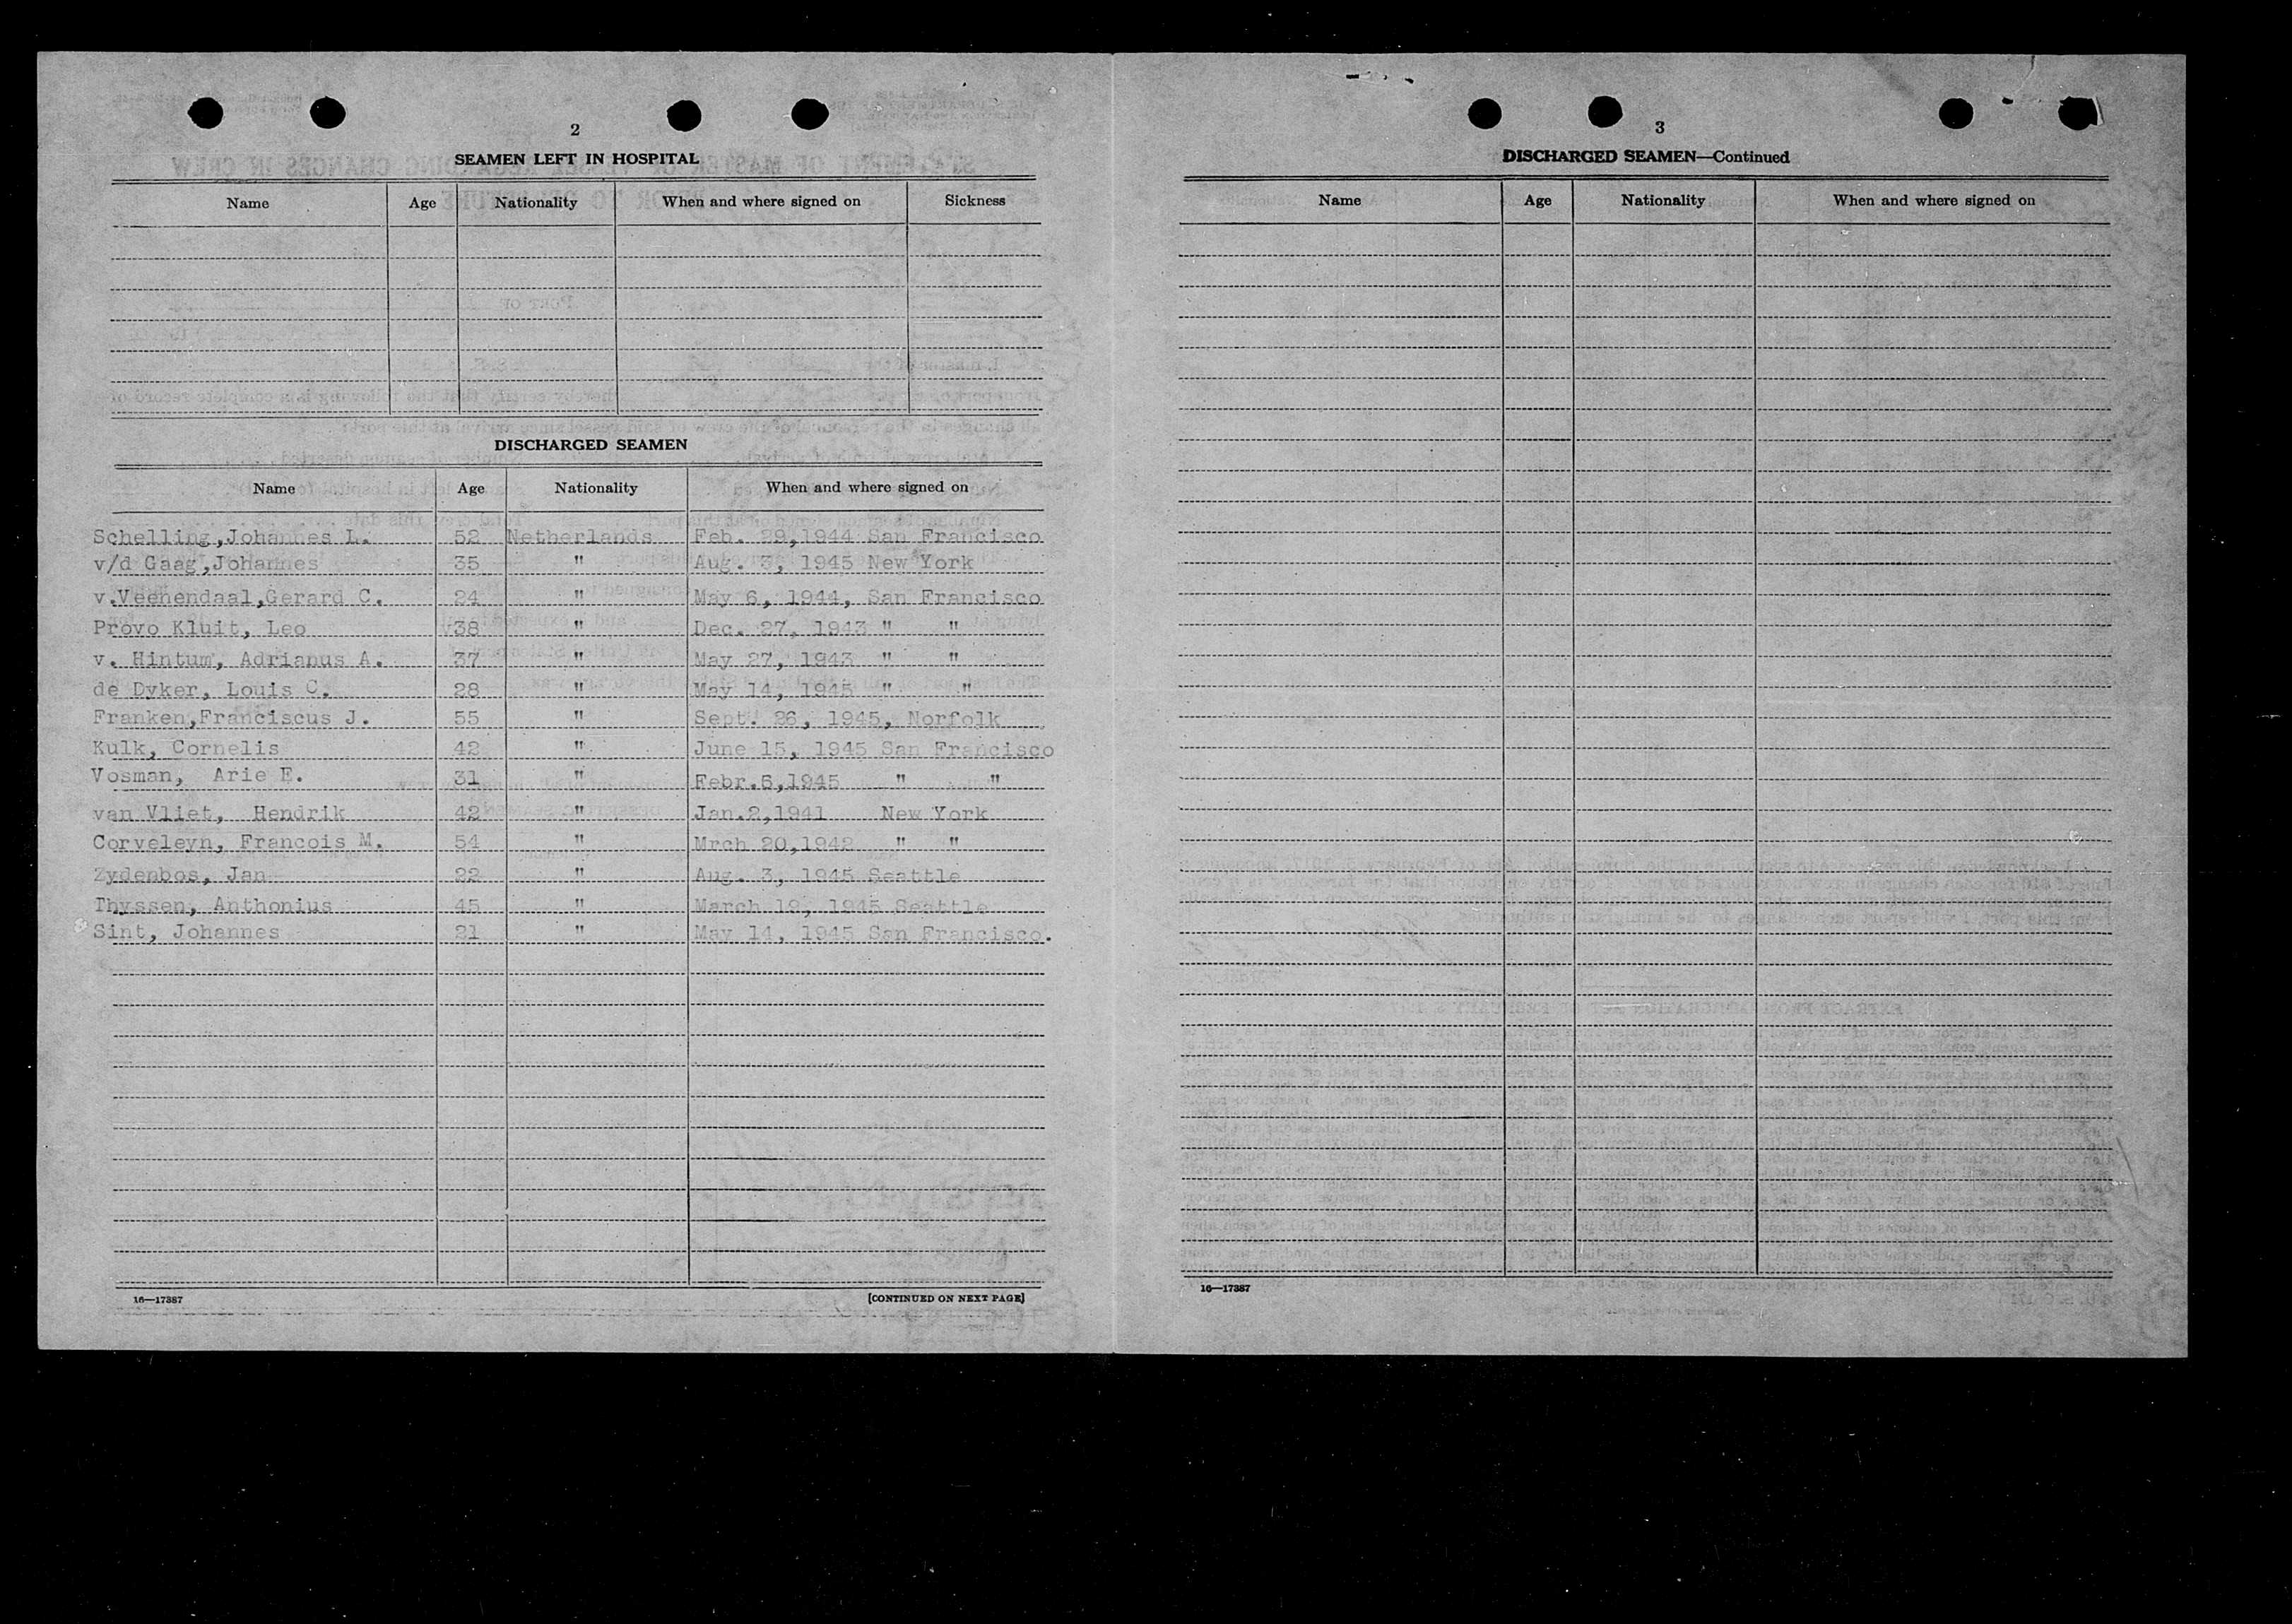 2
SEAMEN LEFT IN HOSPITAL
Name Age Nationality When and where signed on Sickness
DISCHARGED SEAMEN
Name Age Nationality When and where signed on
Schelling,Johannes L. 52 Netherlands Feb. 29,1944 San Francisco
v/d Gaag,Johannes 35 " Aug. 3, 1945 New York
v.Veenendaal,Gerard C. 24 " May 6, 1944, San Francisco
Provo Kluit, Leo 38 " Dec. 27, 1943 " "
v. Hintum, Adrianus A. 37 " May 27, 1943 " "
de Dyker, Louis C. 28 " May 14, 1945 " "
Franken,Franciscus J. 55 " Sept. 26, 1945, Norfolk
Kulk, Cornelis 42 " June 15, 1945 San Francisco
Vosman, Arie E. 31 " Febr.6,1945 " "
van Vliet, Hendrik 42 " Jan.2,1941 New York
Corveleyn, Francois M. 54 " Mrch 20,1942 " "
Zydenbos, Jan 22 " Aug. 3, 1945 Seattle
Thyssen, Anthonius 45 " March 19, 1945 Seattle
Sint, Johannes 21 " May 14, 1945 San Francisco.
16—17387 [CONTINUED ON NEXT PAGE]
3
DISCHARGED SEAMEN—Continued
Name Age Nationality When and where signed on
16—17387